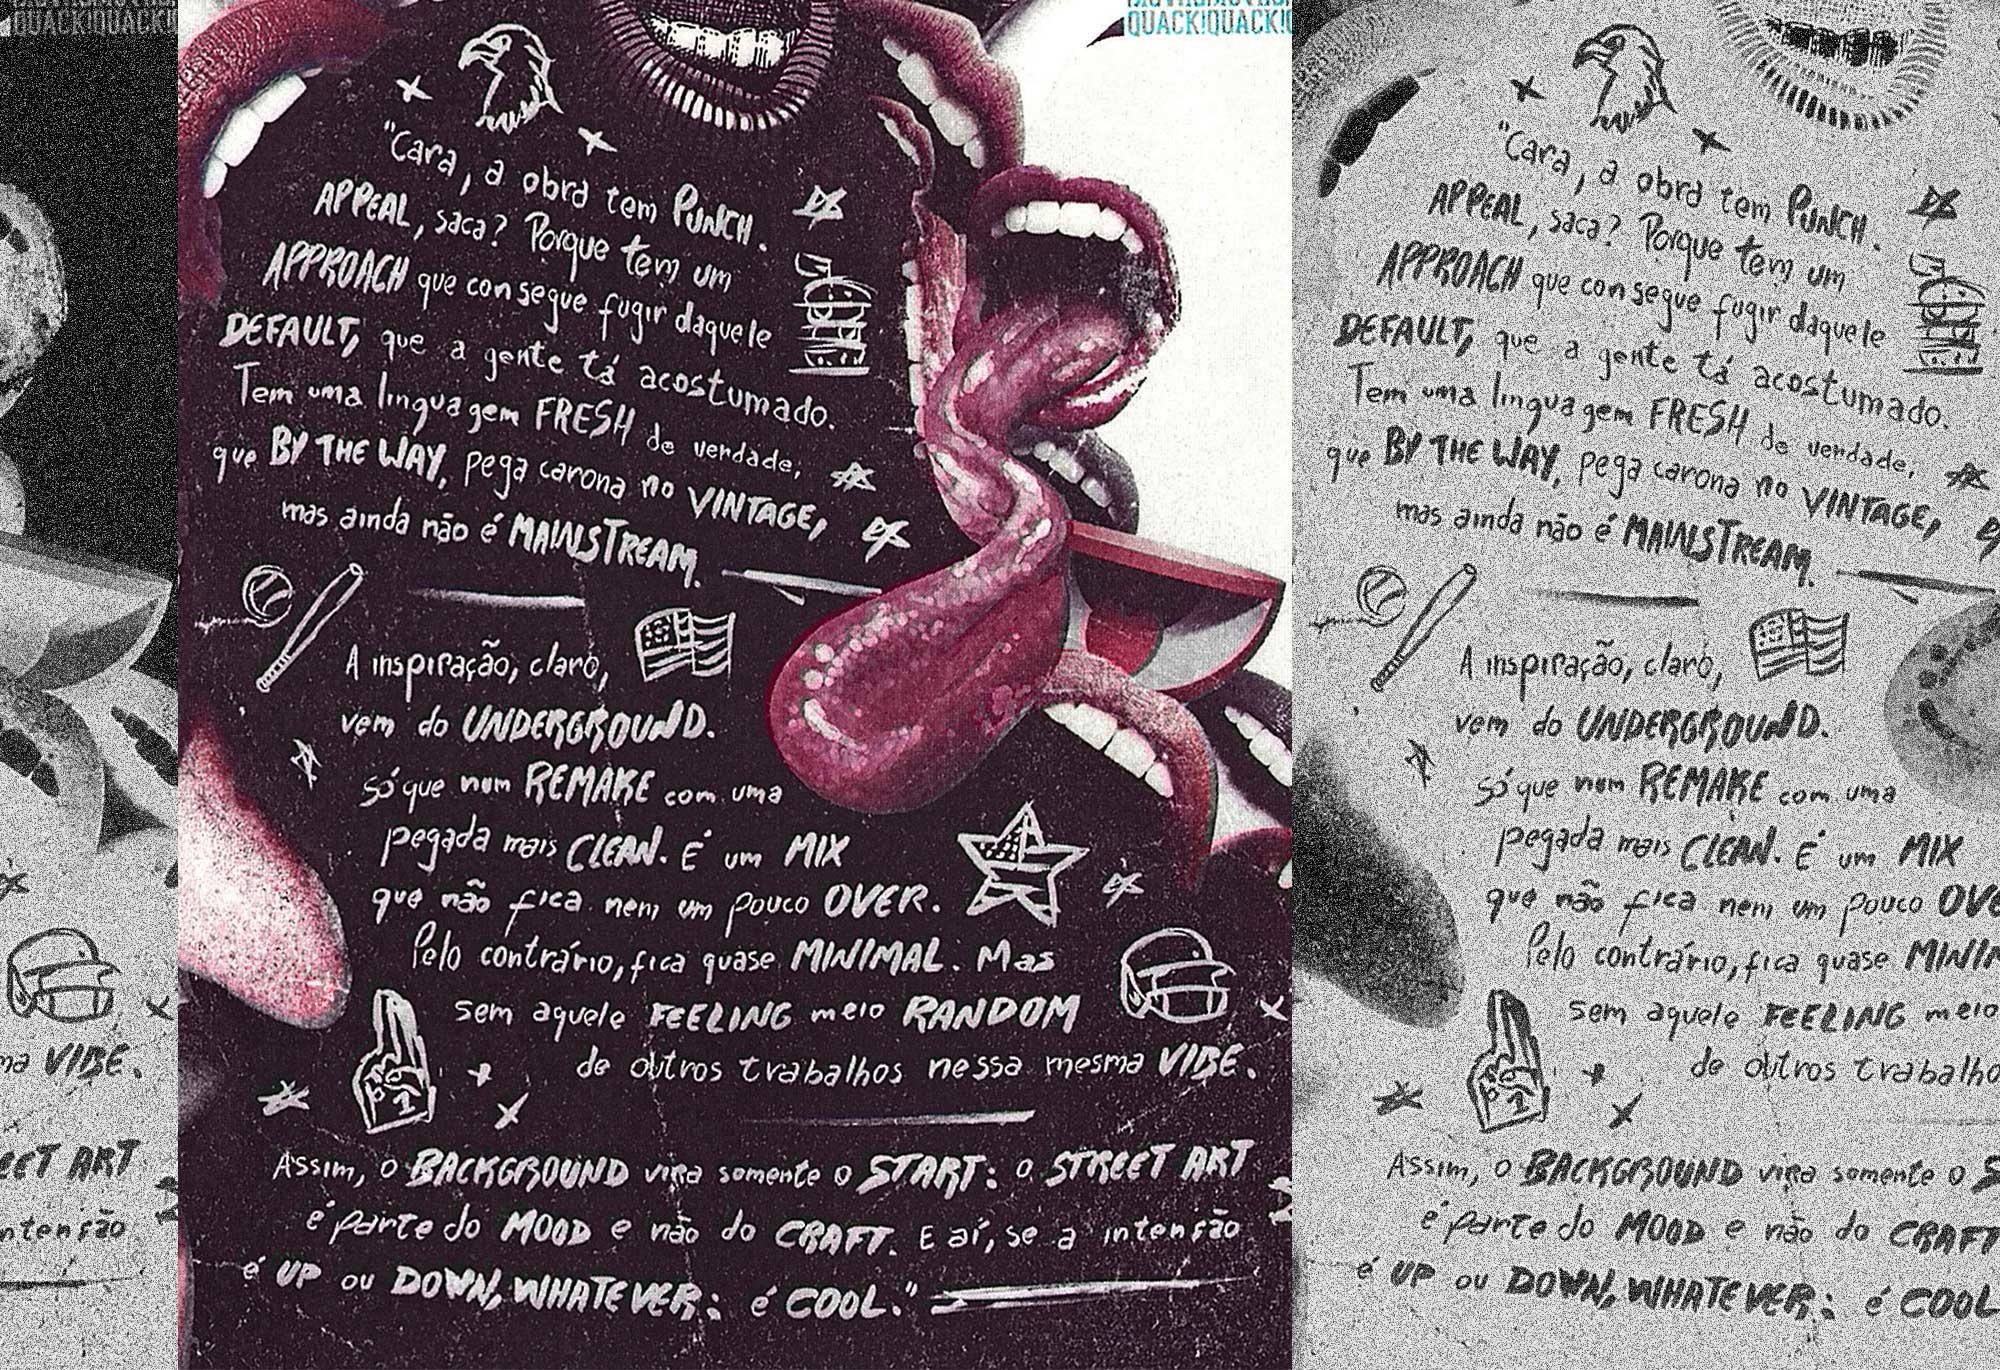 QUACK!QUACK!
"Cara, a obra tem PUNCH.
APPEAL, saca? Porque tem um
APPROACH que consegue fugir daquele
DEFAULT, que a gente tá acostumado.
Tem uma linguagem FRESH de verdade,
que BY THE WAY, pega carona no VINTAGE,
mas ainda não é MAINSTREAM.
A inspiração, claro,
vem do UNDERGROUND.
só que num REMAKE com uma
pegada mais CLEAN. É um MIX
que não fica nem um pouco OVER.
Pelo contrário, fica quase MINIMAL. Mas
sem aquele FEELING meio RANDOM
de outros trabalhos nessa mesma VIBE.
Assim, o BACKGROUND vira somente o START: o STREET ART
é parte do MOOD e não do CRAFT. E aí, se a intensão
é UP ou DOWN, WHATEVER: é COOL."
QUACK!QUACK!
VIBE.
ART
"Cara, a obra tem PUNCH.
APPEAL, saca? Porque tem um
APPROACH que consegue fugir daquele
DEFAULT, que a gente tá acostumado.
Tem uma linguagem FRESH de verdade,
que BY THE WAY, pega carona no VINTAGE,
mas ainda não é MAINSTREAM.
A inspiração, claro,
vem do UNDERGROUND.
só que num REMAKE com uma
pegada mais CLEAN. É um MIX
que não fica nem um pouco
Pelo contrário, fica quase
sem aquele FEELING meio
de outros
Assim, o BACKGROUND vira somente o
é parte do MOOD e não do
é UP ou DOWN, WHATEVER: é COOL